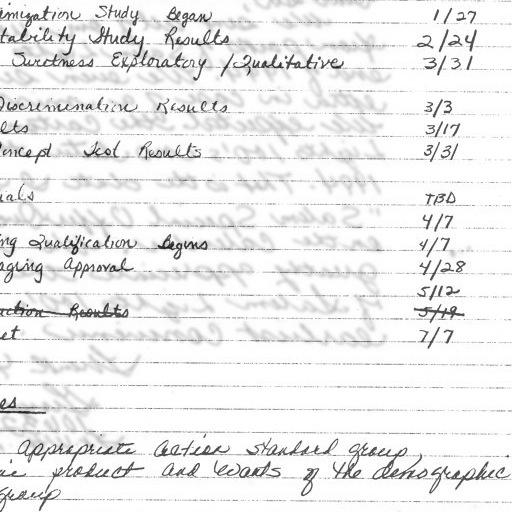 imization Study Began 1/27
tability Study Results 2/24
Sweetness Exploratory / Qualitative 3/31
Discrimination Results 3/3
lts 3/17
oncept Test Results 3/31
ials TBD
4/7
ing Qualification Begins 4/7
aging Approval 4/28
5/12
action Results 5/19
et 7/7
es
Appropriate action standard group,
ic product and wants of the demographic
group